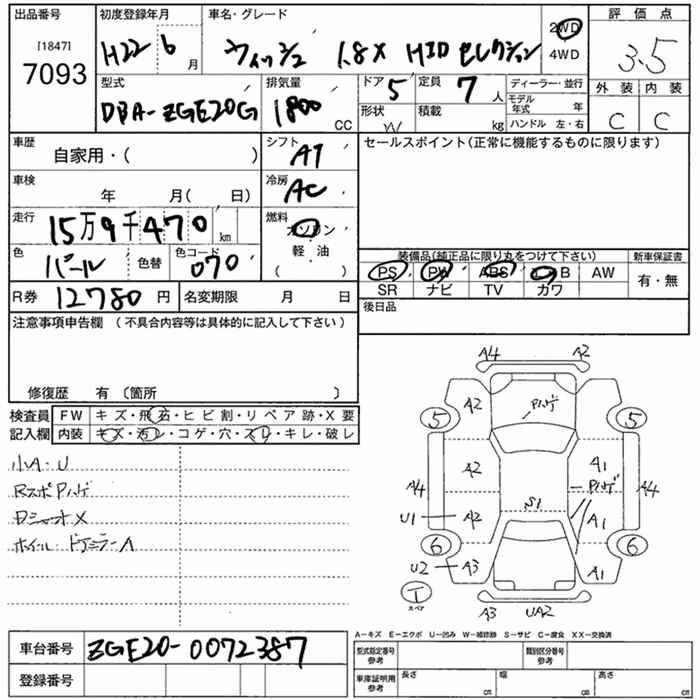 出品番号
[1847]
7093
初度登録年月
H22 6 月
車名・グレード
ウィッシュ 1.8X HID セレクション
2WD
4WD
評価点
3.5
外装 内装
C C
型式
DBA-ZGE20G
排気量
1800 CC
ドア 5
形状 W
定員 7 人
積載 kg
ディーラー・並行
モデル年式 年
ハンドル 左・右
車歴
自家用・( )
シフト AT
車検
年 月( 日)
冷房 AC
走行
15万9千470 km
燃料
ガソリン
軽・油
( )
色
パール
色替
色コード
070
R券 12780 円
名変期限 月 日
セールスポイント(正常に機能するものに限ります)
装備品(純正品に限り丸をつけて下さい)
新車保証書
PS PW ABS エアB AW
有・無
SR ナビ TV カワ
後日品
注意事項申告欄 (不具合内容等は具体的に記入して下さい)
修復歴 有 〔箇所 〕
検査員
記入欄
FW キズ・飛石・ヒビ割・リペア跡・X要
内装 キズ・汚レ・コゲ・穴・スレ・キレ・破レ
小A・U
RスポPハゲ
ホイール・ドアミラーA
A4 A2
A2 Pハゲ
5 5
A2 A1
Pハゲ
A4 A4
S1
U1 A2 A1
6 6
U2 A3 A1
T
スペア
A3 UA2
A-キズ E-エクボ U-凹み W-補修跡 S-サビ C-腐食 XX-交換済
車台番号 ZGE20-0072387
登録番号
型式指定番号
参考
類別区分番号
参考
車庫証明用
参考
長さ cm
幅 cm
高さ cm